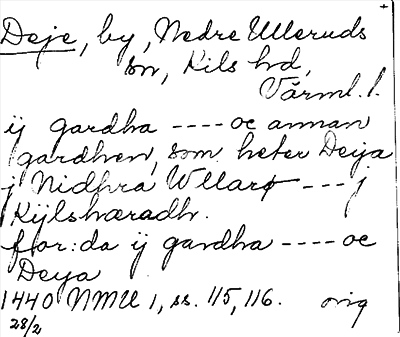 Deje, by, Nedre Ulleruds
sn, Kils hd,
Värml. l.
ij gardha ---- oc annan
gardhen, som heter Deija
j Nidhra Wllarø --- j
Kijlshæradh.
for:da ij gardha ---- oc
Deya
1440 NMU 1, ss. 115, 116. orig
28/2